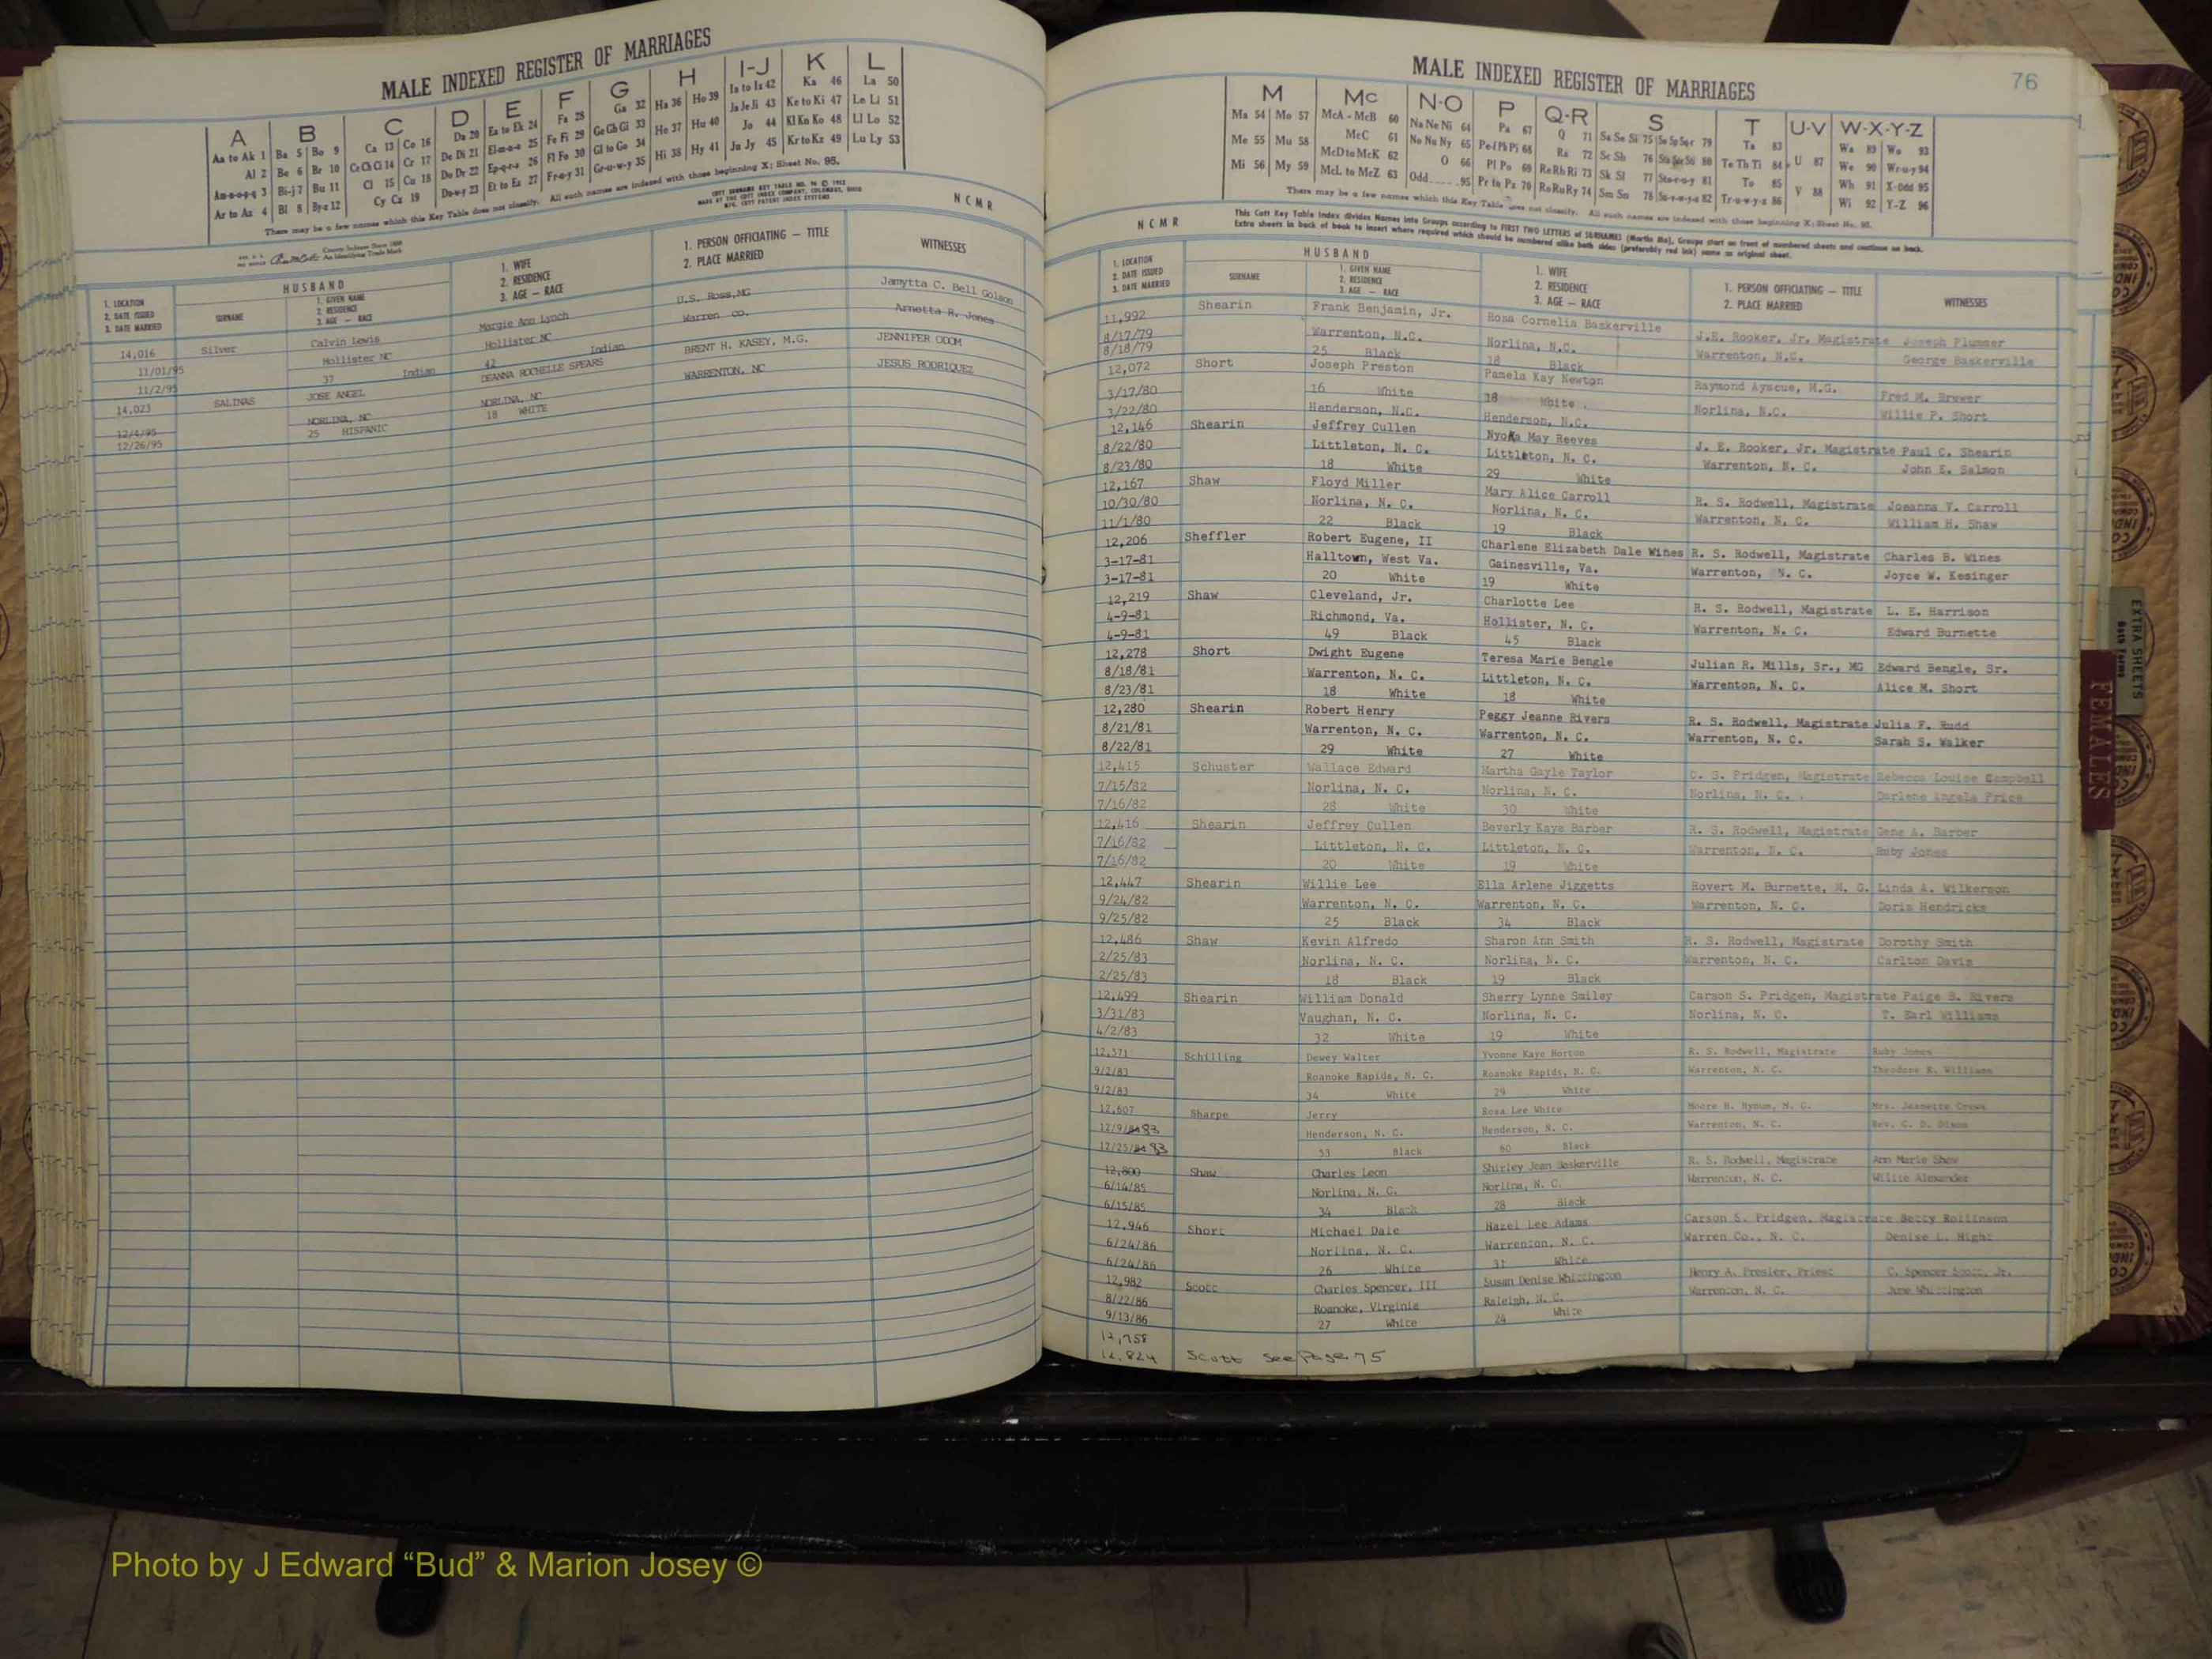 MALE INDEXED REGISTER OF MARRIAGES
A B C D E F G H I-J K L
Aa to Ak 1 Ba 5 Bo 9 Ca 13 Co 16 Da 20 Ea to Ek 24 Fa 28 Ga 32 Ha 36 Ho 39 Ia to Iz 42 Ka 46 La 50
Al 2 Be 6 Br 10 Ce Ch Ci 14 Cr 17 De Di 21 El-m-n-o 25 Fe Fi 29 Ge Gh Gi 33 He 37 Hu 40 Ja Je Ji 43 Ke to Ki 47 Le Li 51
Am-n-o-p-q 3 Bi-j 7 Bu 11 Cl 15 Cu 18 Do Dr 22 Ep-q-r-s 26 Fl Fo 30 Gl to Go 34 Hi 38 Hy 41 Jo 44 Kl Kn Ko 48 Ll Lo 52
Ar to Az 4 Bl 8 By-z 12 Cy Cz 19 Du-w-y 23 Et to Ez 27 Fr-u-y 31 Gr-u-w-y 35 Ju Jy 45 Kr to Kz 49 Lu Ly 53
There may be a few names which this Key Table does not classify. All such names are indexed with those beginning X; Sheet No. 95.
COTT SURNAME KEY TABLE NO.
MADE BY THE COTT INDEX COMPANY, COLUMBUS, OHIO
MFG. COTT PATENT INDEX SYSTEMS
N C M R
County Indexes Since 1888
An Identifying Trade Mark
HUSBAND
1. LOCATION
2. DATE ISSUED
3. DATE MARRIED
SURNAME
1. GIVEN NAME
2. RESIDENCE
3. AGE — RACE
1. WIFE
2. RESIDENCE
3. AGE — RACE
1. PERSON OFFICIATING — TITLE
2. PLACE MARRIED
WITNESSES
14,016 Silver Calvin Lewis Margie Ann Lynch U.S. Ross, MG Jamytta C. Bell Golson
11/01/95 Hollister NC Hollister NC Warren co. Arnetta R. Jones
11/2/95 37 Indian 42 Indian
14,023 SALINAS JOSE ANGEL DEANNA ROCHELLE SPEARS BRENT H. KASEY, M.G. JENNIFER ODOM
12/4/95 NORLINA, NC NORLINA, NC WARRENTON, NC JESUS RODRIQUEZ
12/26/95 25 HISPANIC 18 WHITE
MALE INDEXED REGISTER OF MARRIAGES
76
M Mc N-O P Q-R S T U-V W-X-Y-Z
Ma 54 Mo 57 McA - McB 60 Na Ne Ni 64 Pa 67 Q 71 Sa Se Si 75 So Sp Sq-r 79 Ta 83 Wa 89 Wo 93
Me 55 Mu 58 McC 61 No Nu Ny 65 Pe-f Ph Pi 68 Ra 72 Sc Sh 76 80 Te Th Ti 84 U 87 We 90 Wr-u-y 94
Mi 56 My 59 McD to McK 62 O 66 Pl Po 69 Re Rh Ri 73 Sk Sl 77 Sto-r-u-y 81 To 85 V 88 Wh 91 X-Odd 95
McL to McZ 63 Odd......95 Pr to Pz 70 Ro Ru Ry 74 Sm Sn 78 Su-v-w-y-z 82 Tr-u-w-y-z 86 Wi 92 Y-Z 96
There may be a few names which this Key Table does not classify. All such names are indexed with those beginning X; Sheet No. 95.
N C M R
This Cott Key Table Index divides Names into Groups according to FIRST TWO LETTERS of SURNAMES (Martin Ma), Groups start on front of numbered sheets and continue on back.
Extra sheets in back of book to insert where required which should be numbered alike both sides (preferably red ink) same as original sheet.
HUSBAND
1. LOCATION
2. DATE ISSUED
3. DATE MARRIED
SURNAME
1. GIVEN NAME
2. RESIDENCE
3. AGE — RACE
1. WIFE
2. RESIDENCE
3. AGE — RACE
1. PERSON OFFICIATING — TITLE
2. PLACE MARRIED
WITNESSES
11,992 Shearin Frank Benjamin, Jr. Rosa Cornelia Baskerville J.E. Rooker, Jr. Magistrate Joseph Plummer
8/17/79 Warrenton, N.C. Norlina, N.C. Warrenton, N.C. George Baskerville
8/18/79 25 Black 18 Black
12,072 Short Joseph Preston Pamela Kay Newton Raymond Ayscue, M.G. Fred M. Brewer
3/17/80 16 White 18 White Norlina, N.C. Willie P. Short
3/22/80 Henderson, N.C. Henderson, N.C.
12,146 Shearin Jeffrey Cullen Nyoka May Reeves J. E. Rooker, Jr. Magistrate Paul C. Shearin
8/22/80 Littleton, N. C. Littleton, N. C. Warrenton, N. C. John E. Salmon
8/23/80 18 White 29 White
12,167 Shaw Floyd Miller Mary Alice Carroll R. S. Rodwell, Magistrate Joeanna V. Carroll
10/30/80 Norlina, N. C. Norlina, N. C. Warrenton, N. C. William H. Shaw
11/1/80 22 Black 19 Black
12,206 Sheffler Robert Eugene, II Charlene Elizabeth Dale Wines R. S. Rodwell, Magistrate Charles B. Wines
3-17-81 Halltown, West Va. Gainesville, Va. Warrenton, N. C. Joyce W. Kesinger
3-17-81 20 White 19 White
12,219 Shaw Cleveland, Jr. Charlotte Lee R. S. Rodwell, Magistrate L. E. Harrison
4-9-81 Richmond, Va. Hollister, N. C. Warrenton, N. C. Edward Burnette
4-9-81 49 Black 45 Black
12,278 Short Dwight Eugene Teresa Marie Bengle Julian R. Mills, Sr., MG Edward Bengle, Sr.
8/18/81 Warrenton, N. C. Littleton, N. C. Warrenton, N. C. Alice M. Short
8/23/81 18 White 18 White
12,280 Shearin Robert Henry Peggy Jeanne Rivers R. S. Rodwell, Magistrate Julia F. Rudd
8/21/81 Warrenton, N. C. Warrenton, N. C. Warrenton, N. C. Sarah S. Walker
8/22/81 29 White 27 White
12,415 Schuster Wallace Edward Martha Gayle Taylor C. S. Pridgen, Magistrate Rebecca Louise Campbell
7/15/82 Norlina, N. C. Norlina, N. C. Norlina, N. C. Darlene Angela Price
7/16/82 28 White 30 White
12,416 Shearin Jeffrey Cullen Beverly Kaye Barber R. S. Rodwell, Magistrate Gene A. Barber
7/16/82 Littleton, N. C. Littleton, N. C. Warrenton, N. C. Ruby Jones
7/16/82 20 White 19 White
12,447 Shearin Willie Lee Ella Arlene Jiggetts Rovert M. Burnette, M. G. Linda A. Wilkerson
9/24/82 Warrenton, N. C. Warrenton, N. C. Warrenton, N. C. Doris Hendricks
9/25/82 25 Black 34 Black
12,486 Shaw Kevin Alfredo Sharon Ann Smith R. S. Rodwell, Magistrate Dorothy Smith
2/25/83 Norlina, N. C. Norlina, N. C. Warrenton, N. C. Carlton Davis
2/25/83 18 Black 19 Black
12,499 Shearin William Donald Sherry Lynne Smiley Carson S. Pridgen, Magistrate Paige B. Rivers
3/31/83 Vaughan, N. C. Norlina, N. C. Norlina, N. C. T. Earl Williams
4/2/83 32 White 19 White
12,571 Schilling Dewey Walter Yvonne Kaye Horton R. S. Rodwell, Magistrate Ruby Jones
9/2/83 Roanoke Rapids, N. C. Roanoke Rapids, N. C. Warrenton, N. C. Theodore R. Williams
9/2/83 34 White 29 White
12,607 Sharpe Jerry Rosa Lee White Moore H. Hymum, M. G. Mrs. Jeanette Crews
12/9/83 Henderson, N. C. Henderson, N. C. Warrenton, N. C. Rev. C. D. Dixon
12/25/83 53 Black 60 Black
12,800 Shaw Charles Leon Shirley Jean Baskerville R. S. Rodwell, Magistrate Ann Marie Shaw
6/14/85 Norlina, N. C. Norlina, N. C. Warrenton, N. C. Willie Alexander
6/15/85 34 Black 28 Black
12,946 Short Michael Dale Hazel Lee Adams Carson S. Pridgen, Magistrate Betty Rollinson
6/24/86 Norlina, N. C. Warrenton, N. C. Warren Co., N. C. Denise L. Hight
6/24/86 26 White 31 White
12,982 Scott Charles Spencer, III Susan Denise Whittington Henry A. Presler, Priest C. Spencer Scott, Jr.
8/22/86 Roanoke, Virginia Raleigh, N. C. Warrenton, N. C. June Whittington
9/13/86 27 White 24 White
12,758
12,824 Scott See Page 75
EXTRA SHEETS
FEMALES
Photo by J Edward “Bud” & Marion Josey ©